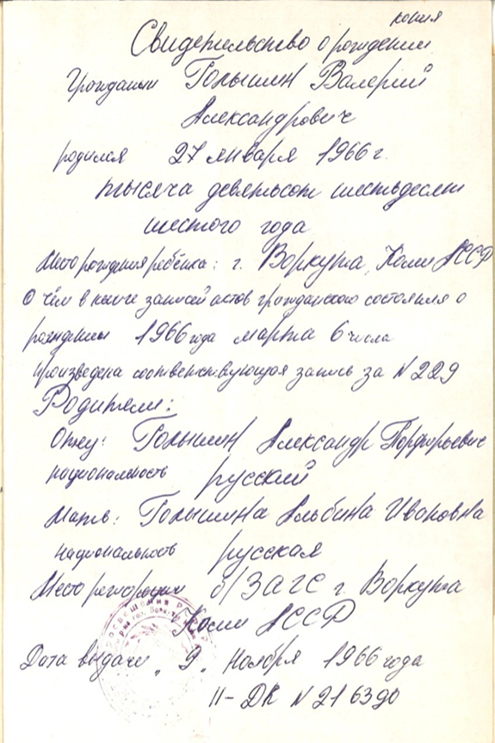 копия
Свидетельство о рождении
Гражданин Голышин Валерий
Александрович
родился 27 января 1966 г.
тысяча девятьсот шестьдесят
шестого года
Место рождения ребёнка: г. Воркута, Коми АССР
О чём в книге записей актов гражданского состояния о
рождении 1966 года марта 6 числа
произведена соответствующая запись за N 229
Родители:
Отец: Голышин Александр Порфирьевич
национальность русский
Мать: Голышина Альбина Ивановна
национальность русская
Место регистрации б/ЗАГС г. Воркута
Коми АССР
Дата выдачи "9" Ноября 1966 года
II-ДК N 216390